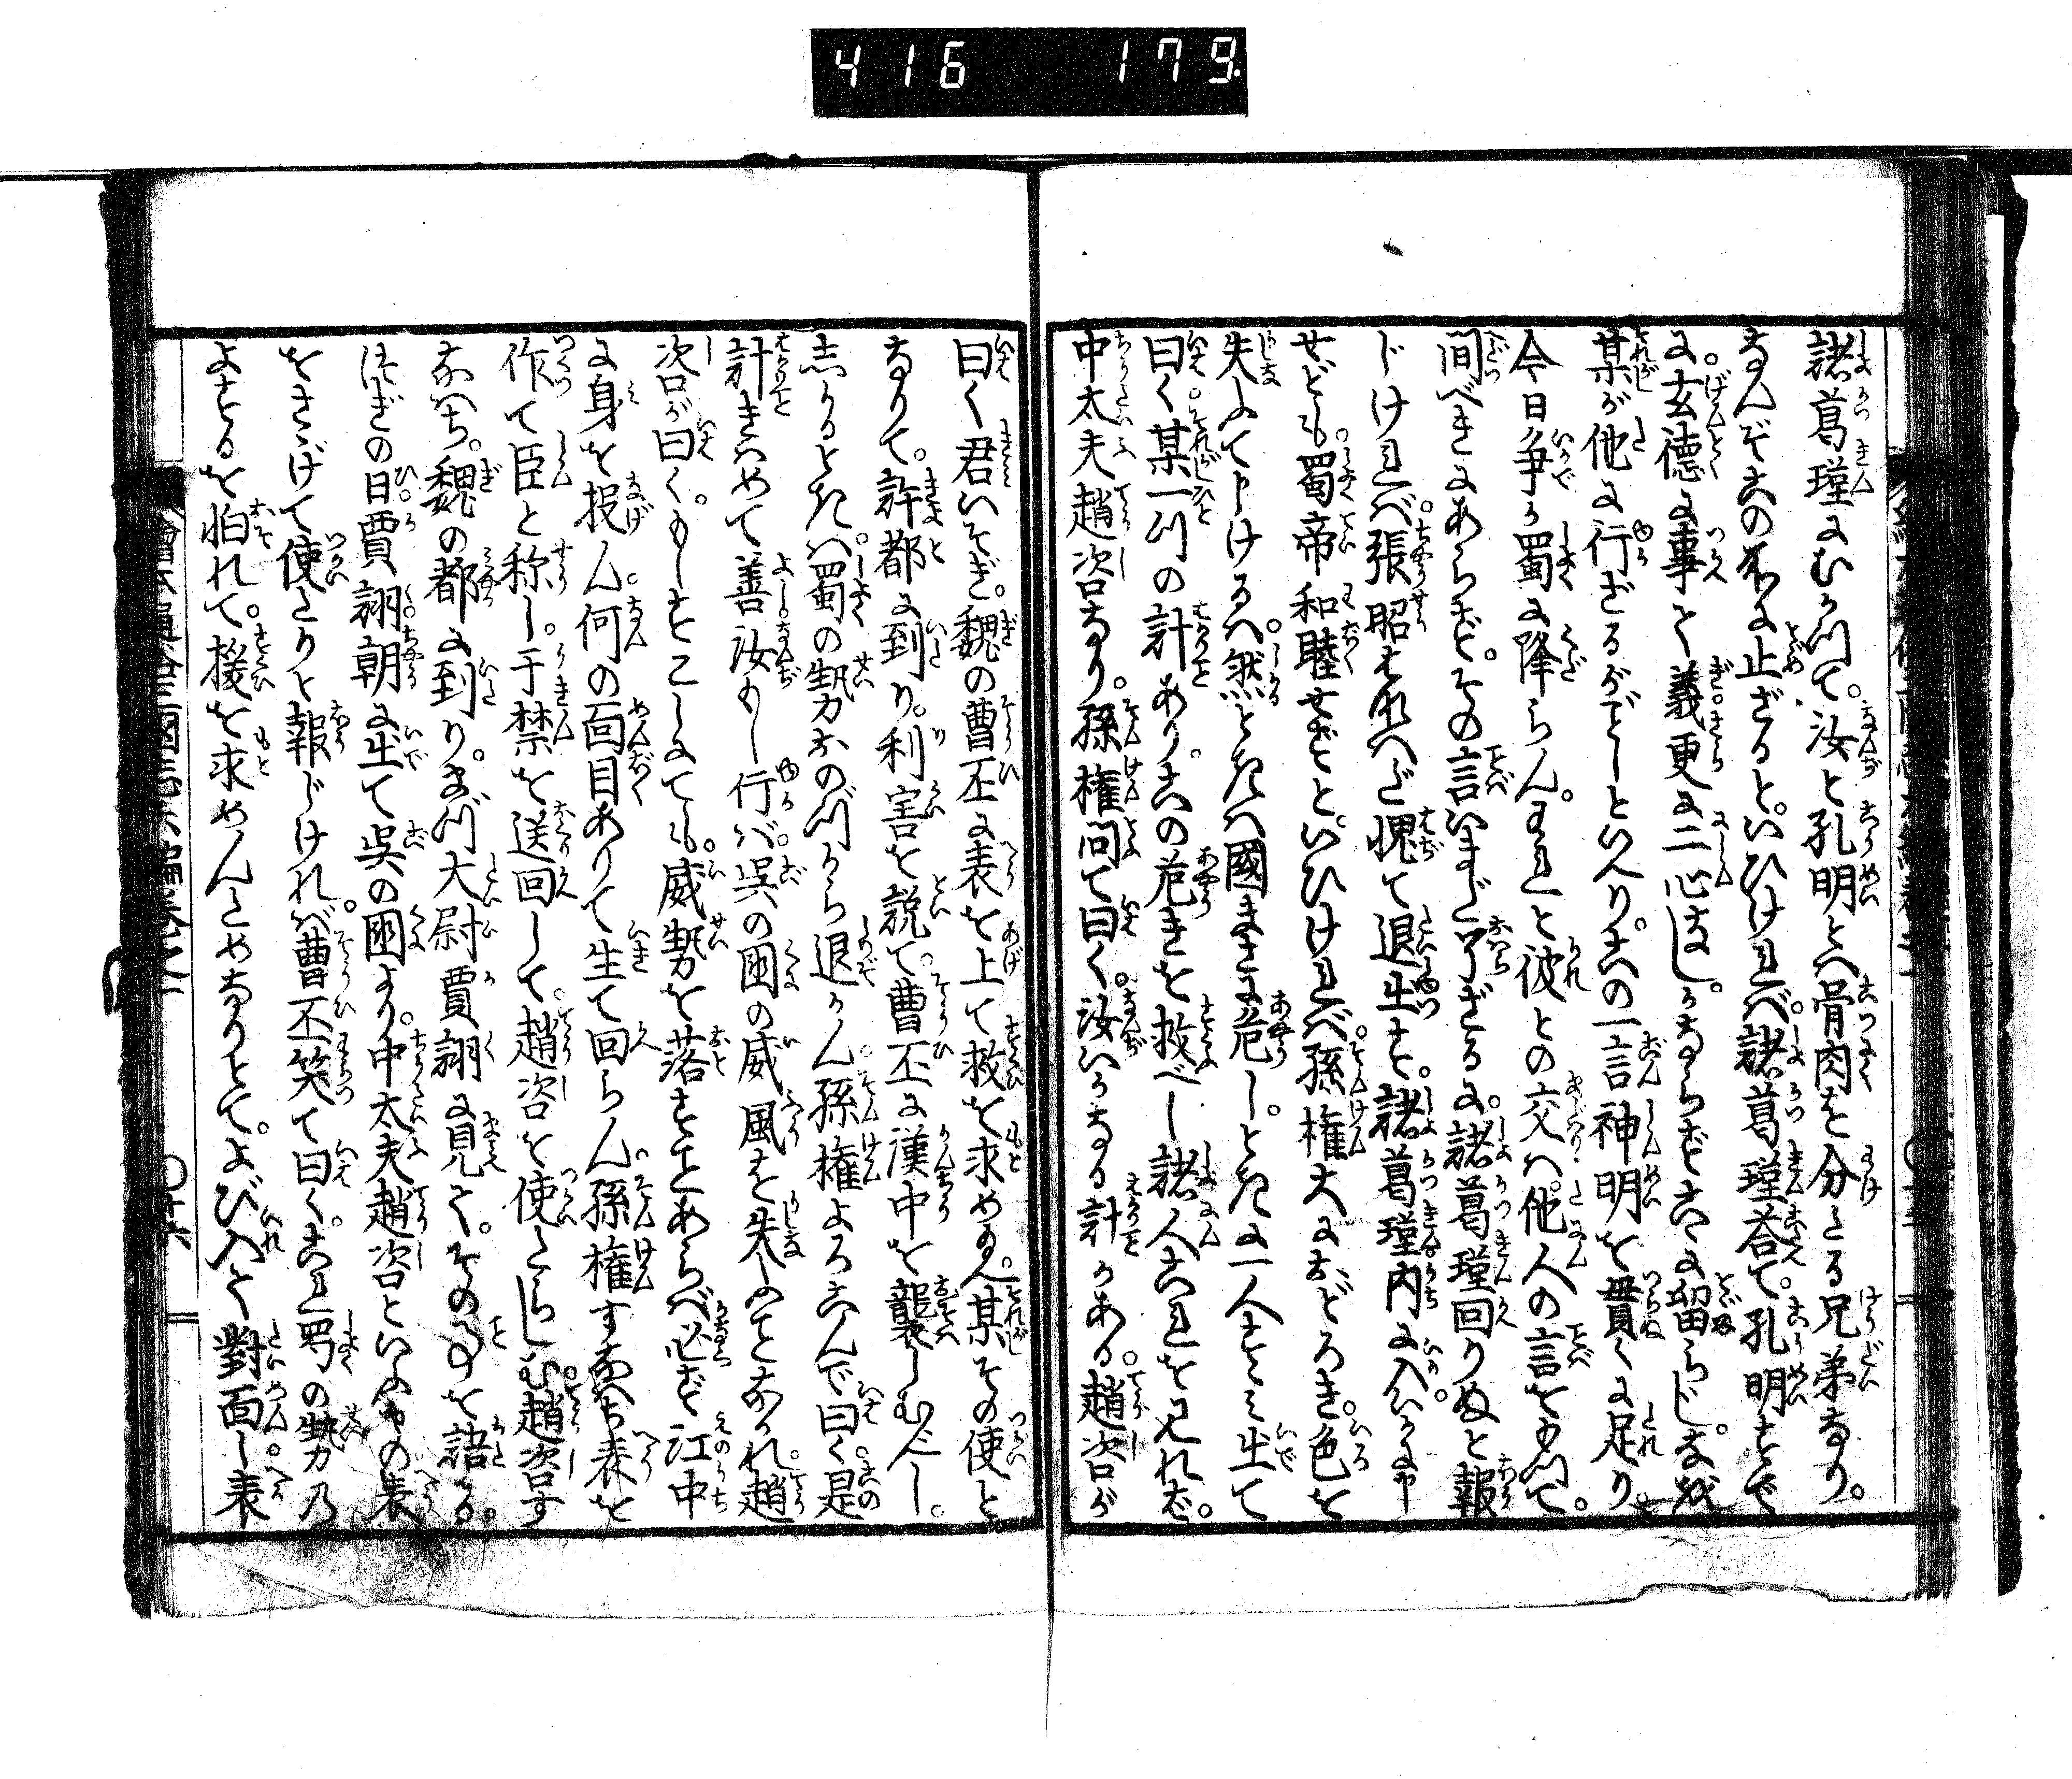 416 179
諸葛瑾にむかつて。汝と孔明とハ骨肉を分たる兄弟なり。
なんぞこの不に止ざると。いひけれバ。諸葛瑾荅て。孔明すで
に。玄徳に事て義更に二心なし。かならずこゝに留らじ。なを
某が他に行ざるがごとしといへり。この一言神明を貫くに足り
今日争か蜀に降らん。われと彼との交ハ。他人の言をもつて。
間べきにあらず。その言いまだ了ざるに。諸葛瑾回りぬと報
じけれバ。張昭それへど愧て退出す。諸葛瑾内に入。いかに申
せども。蜀帝和睦せずと。いひけれバ。孫権大におどろき。色を
失ふて申けるハ。然るときハ國まさに危し。ときに一人すゝみ出て
曰く。某一川の計あり。この危きを救べし諸人これを見れば。
中太夫趙咨なり。孫権問て曰く。汝いかなる計かある。趙咨が
曰く君いそぎ。魏の曹丕に表を上て救を求めよ。某その使と
なりて。許都に到り。利害を説て。曹丕に漢中を襲しむべし。
しかるときハ。蜀の勢おのづから退かん。孫権よろこんで曰く。是
計きハめて善。汝もし行バ。呉の国の威風を失ふことなかれ。趙
咨が曰く。もしすこしにても。威勢を落すことあらバ。必ず江中
に身を投ん。何の面目ありて生て回らん。孫権すなハち表を
作て臣と称し。于禁を送回して。趙咨を使たらしむ。趙咨す
なハち。魏の都に到り。まづ大尉賈詡に見て。その事を語る。
次ぎの日。賈詡朝に出て呉の国より。中太夫趙咨といふもの表
をさゝげて使たりと報じけれバ。曹丕笑て曰く。これ蜀の勢乃
よするを怕れて。援を求めんためなりとて。よび入て對面し表